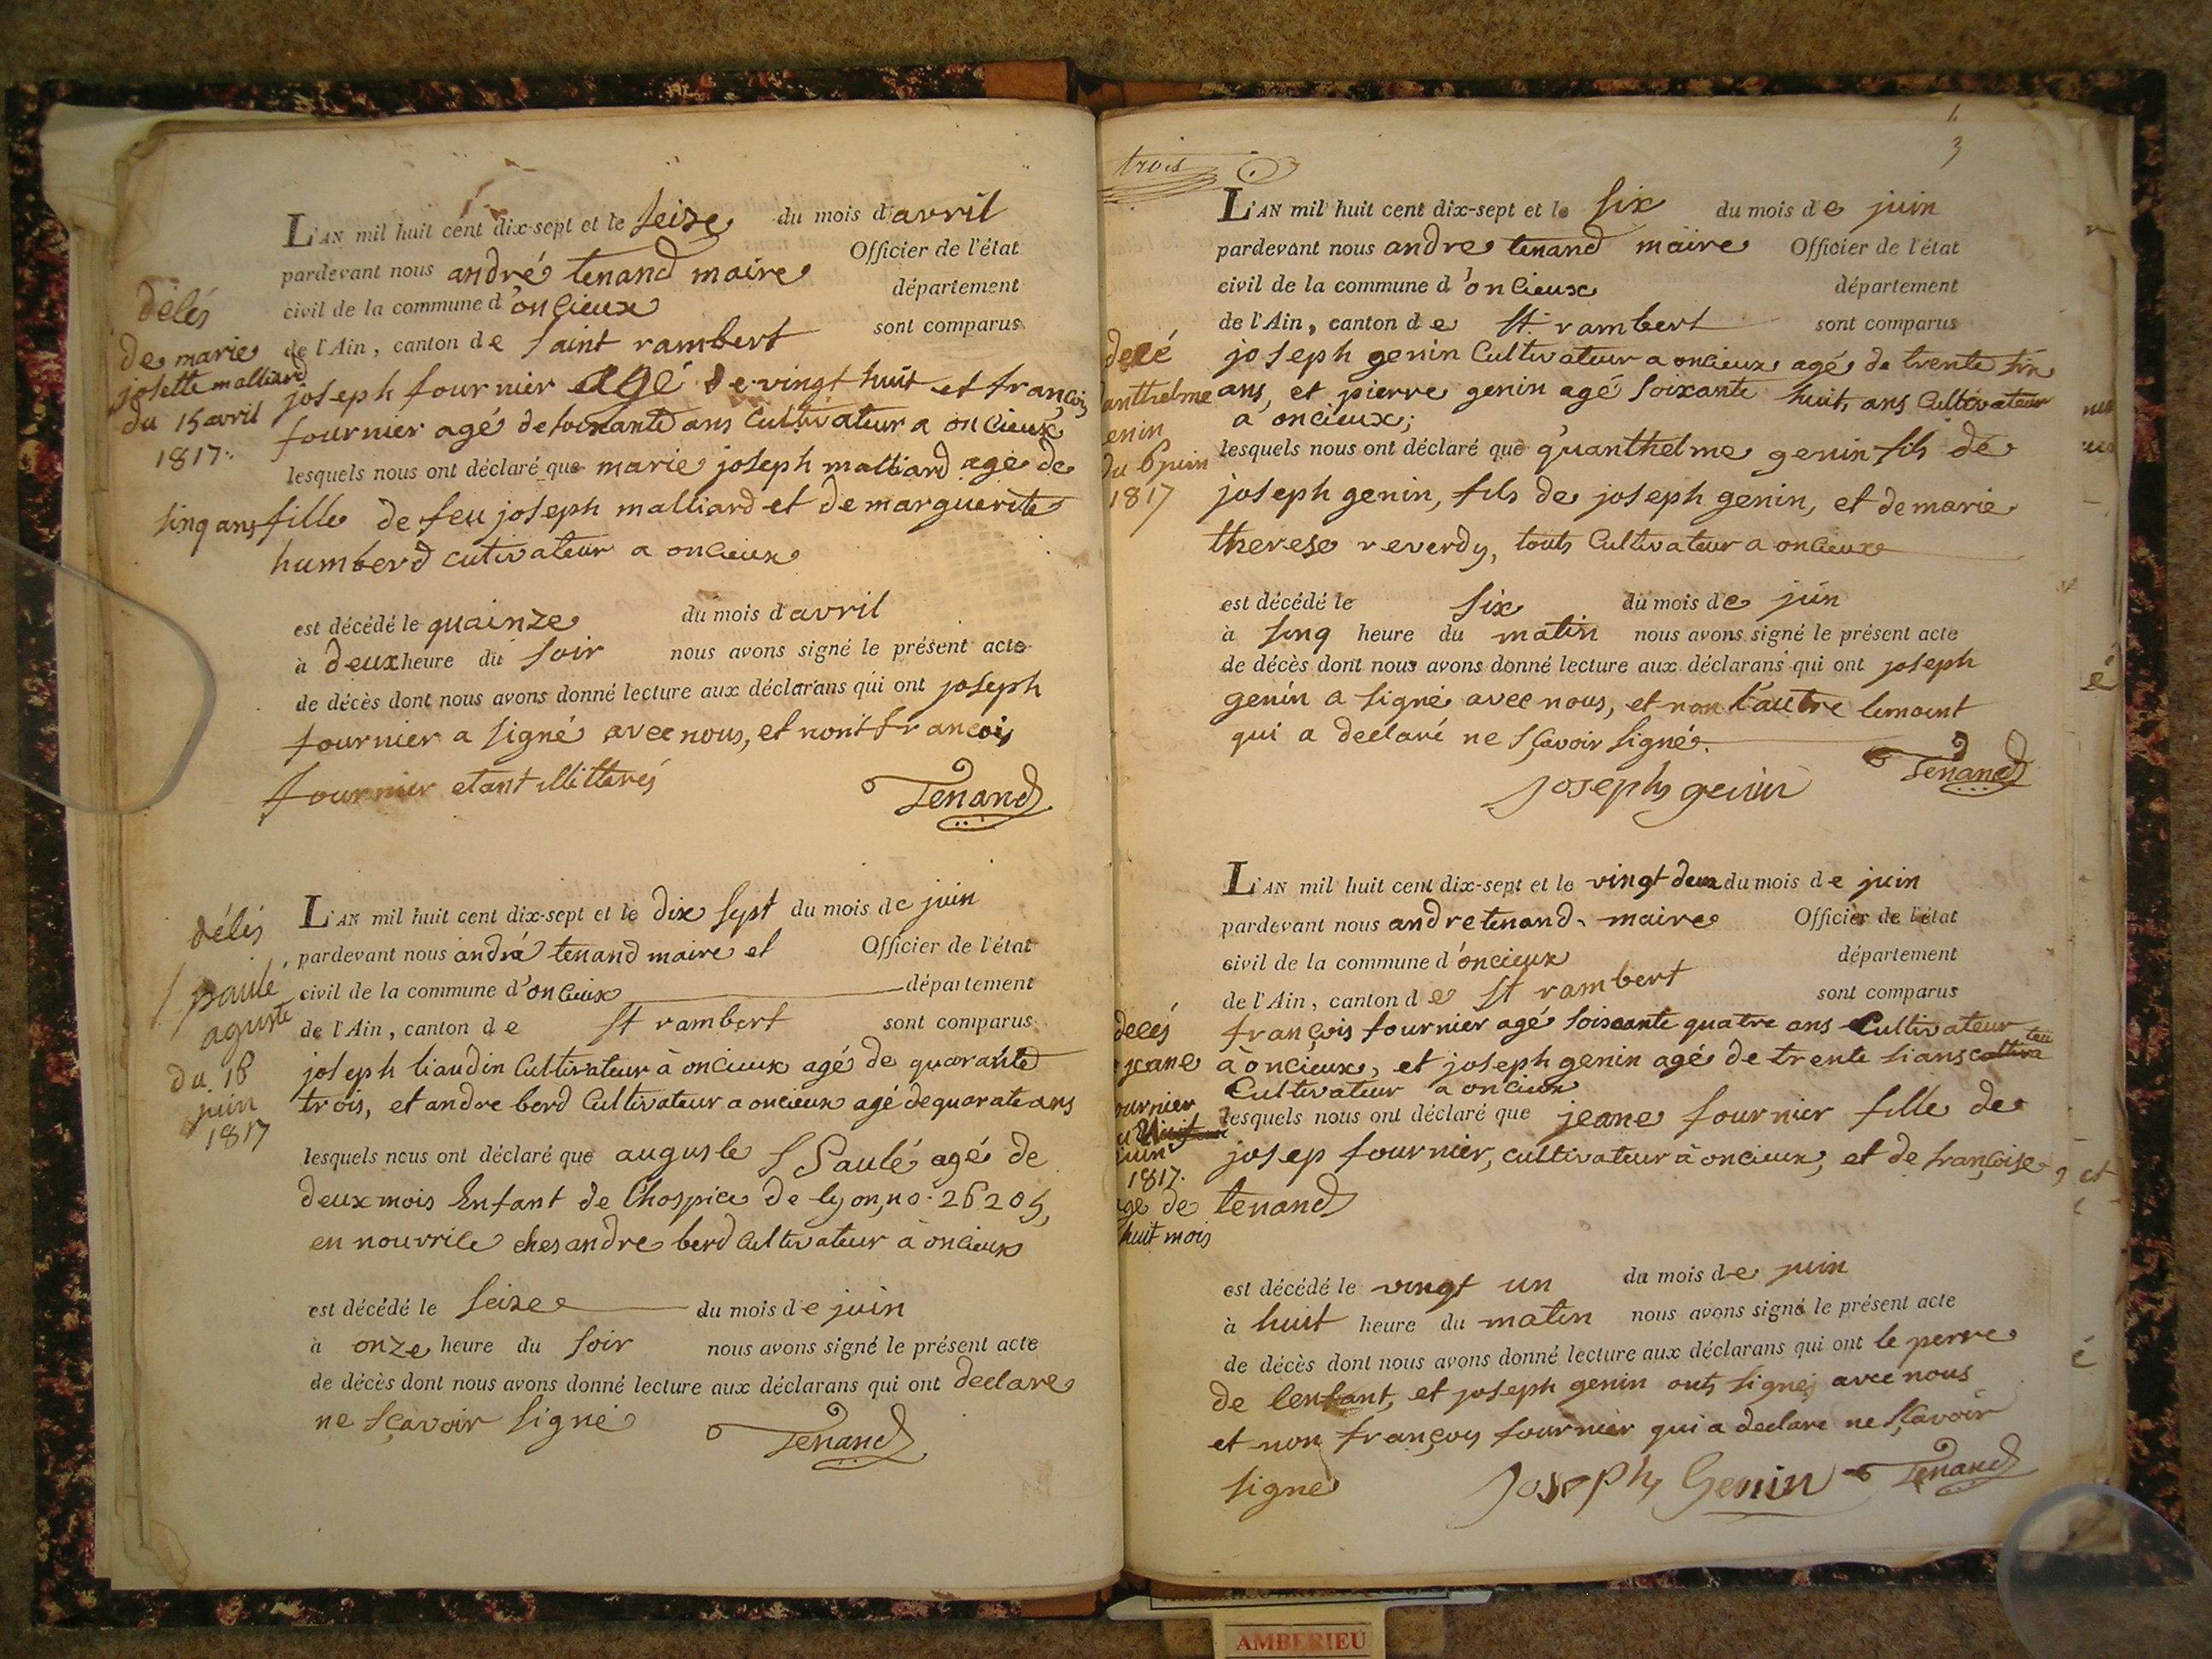 L'AN mil huit cent dix-sept et le seize du mois d'avril
pardevant nous andré tenand maire Officier de l'état
civil de la commune d'oncieux département
de l'Ain, canton de saint rambert sont comparus
joseph fournier agé de vingt huit et françois
fournier agé de soixante ans Cultivateur a oncieux
lesquels nous ont déclaré que marie joseph malliard agé de
sinq ans fille de feu joseph malliard et de marguerite
humberd cutivateur a oncieux
est décédé le quainze du mois d'avril
à deux heure du soir nous avons signé le présent acte
de décès dont nous avons donné lecture aux déclarans qui ont joseph
fournier a signé avec nous, et nont francois
fournier etant illitterés
Tenand
délés
de marie
josette malliard
du 15 avril
1817.
L'AN mil huit cent dix-sept et le dix sept du mois de juin
pardevant nous andré tenand maire et Officier de l'état
civil de la commune d'oncieux département
de l'Ain, canton de st rambert sont comparus
joseph liaudin Cultivateur à oncieux agé de quarante
trois, et andre berd Cultivateur a oncieux agé de quarate ans
lesquels nous ont déclaré que auguste Paulé agé de
deux mois Enfant de l'hospice de lyon, no. 26205,
en nourrice ches andre berd Cultivateur à oncieux
est décédé le seize du mois de juin
à onze heure du soir nous avons signé le présent acte
de décès dont nous avons donné lecture aux déclarans qui ont declare
ne sçavoir signé
Tenand
délés
paulé
aguste
du 16
juin
1817
trois
3
L'AN mil huit cent dix-sept et le six du mois de juin
pardevant nous andre tenand maire Officier de l'état
civil de la commune d'oncieux département
de l'Ain, canton de st rambert sont comparus
joseph genin Cultivateur a oncieux agé de trente six
ans, et pierre genin agé soixante huit, ans Cultivateur
a oncieux;
lesquels nous ont déclaré que qu'anthelme genin fils de
joseph genin, fils de joseph genin, et de marie
therese reverdy, touts Cultivateur a oncieux
est décédé le six du mois de juin
à sinq heure du matin nous avons signé le présent acte
de décès dont nous avons donné lecture aux déclarans qui ont joseph
genin a signé avec nous, et non l'autre
qui a declaré ne sçavoir signé.
joseph genin Tenand
decé
anthelme
enin
du 6 juin
1817
L'AN mil huit cent dix-sept et le vingt deux du mois de juin
pardevant nous andre tenand maire Officier de l'état
civil de la commune d'oncieux département
de l'Ain, canton de st rambert sont comparus
françois fournier agé soixante quatre ans Cultivateur
à oncieux, et joseph genin agé de trente si ans
Cultivateur a oncieux
lesquels nous ont déclaré que jeane fournier fille de
josep fournier, cultivateur à oncieux, et de françoise
tenand
est décédé le vingt un du mois de juin
à huit heure du matin nous avons signé le présent acte
de décès dont nous avons donné lecture aux déclarans qui ont le perre
de lenfant, et joseph genin onts signés avec nous
et non françoys fournier qui a declare ne sçavoir
signe
Joseph Genin Tenand
decés
jeane
ournier
juin
1817.
age de
huit mois
AMBERIEU